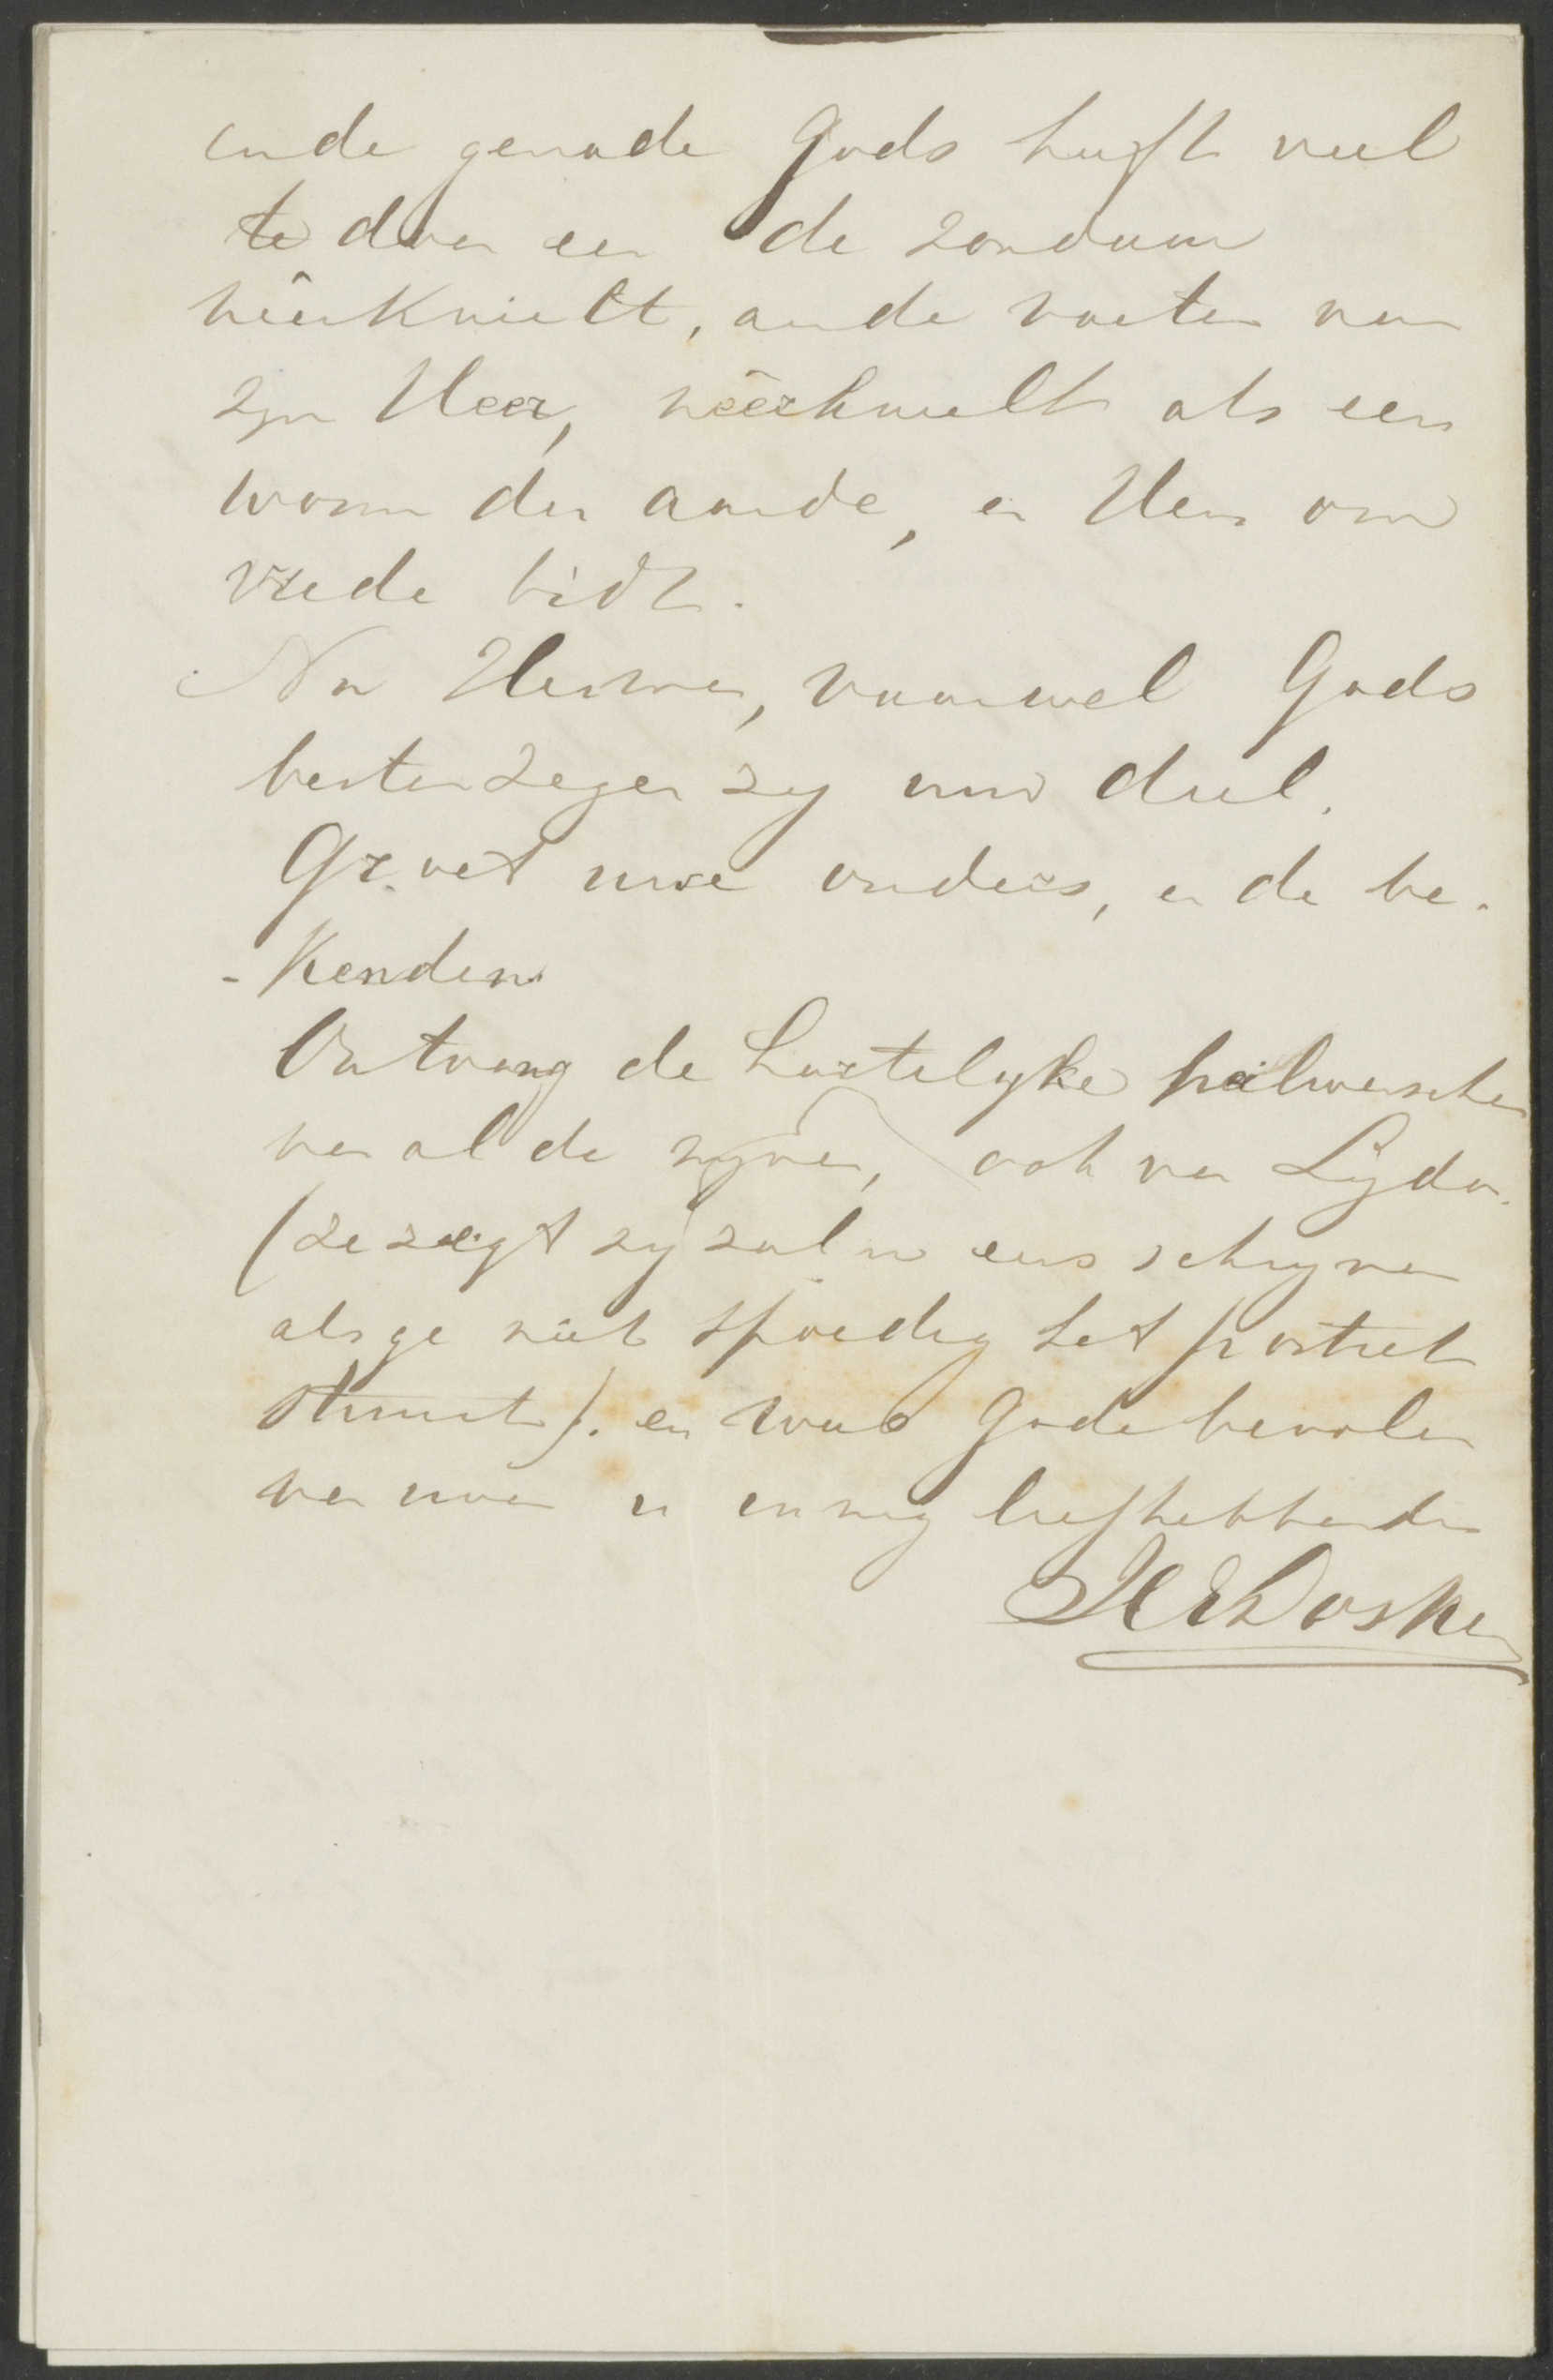 ende genade Gods heeft veel
te doen eer de zondaar
nêerknielt, aan de voeten van
zyn Heer, nêerknielt als een
worm der aarde, en Hem om
vrede bidt.
Nu Herman, vaarwel Gods
besten zegen zy uw deel.
Groet uwe ouders, en de be-
-kenden.
Ontvang de hartelyke heilwenschen
van al de mynen, ook van Lyda.
(ze zegt zy zal u eens schryven
als ge niet spoedig het portret
stuurt). en wees Gode bevolen
van uwen u innig liefhebbenden
HEDosker